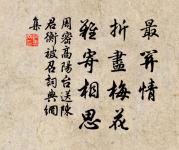 最關情
折盡梅花
難寄相思
周密高陽台送陳
君衡被召詞典網
集